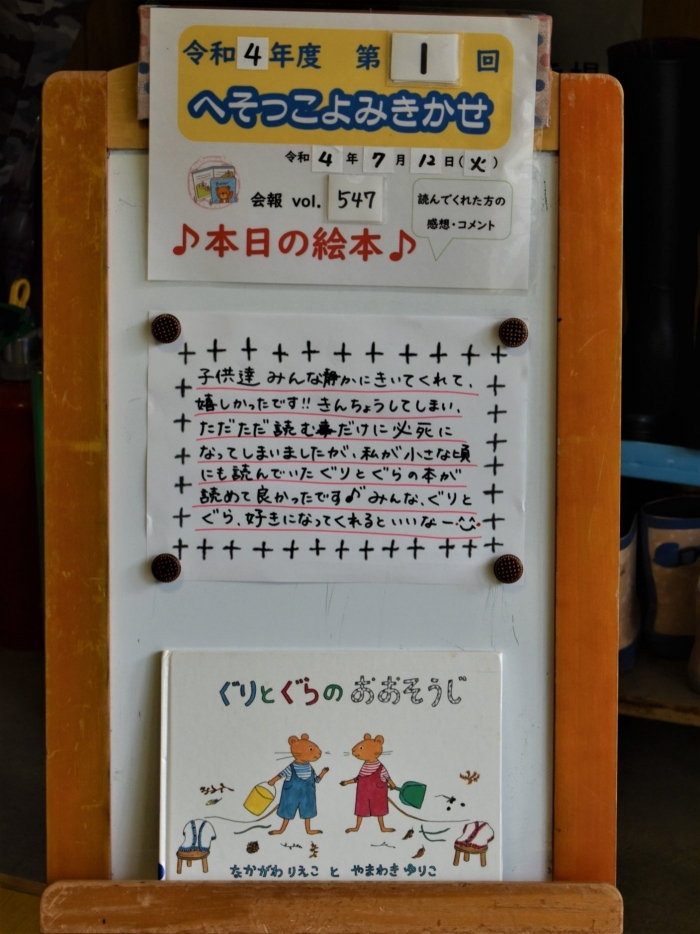 令和4年度 第1回
へそっこよみきかせ
令和4年7月12日(火)
会報 vol. 547
読んでくれた方の
感想・コメント
♪本日の絵本♪
子供達 みんな静かにきいてくれて、
嬉しかったです!! きんちょうしてしまい、
ただただ読む事だけに必死に
なってしまいましたが、私が小さな頃
にも読んでいた ぐりとぐらの本が
読めて良かったです♪ みんな、ぐりと
ぐら、好きになってくれるといいなー
ぐりとぐらの おおそうじ
なかがわ りえこ と やまわき ゆりこ